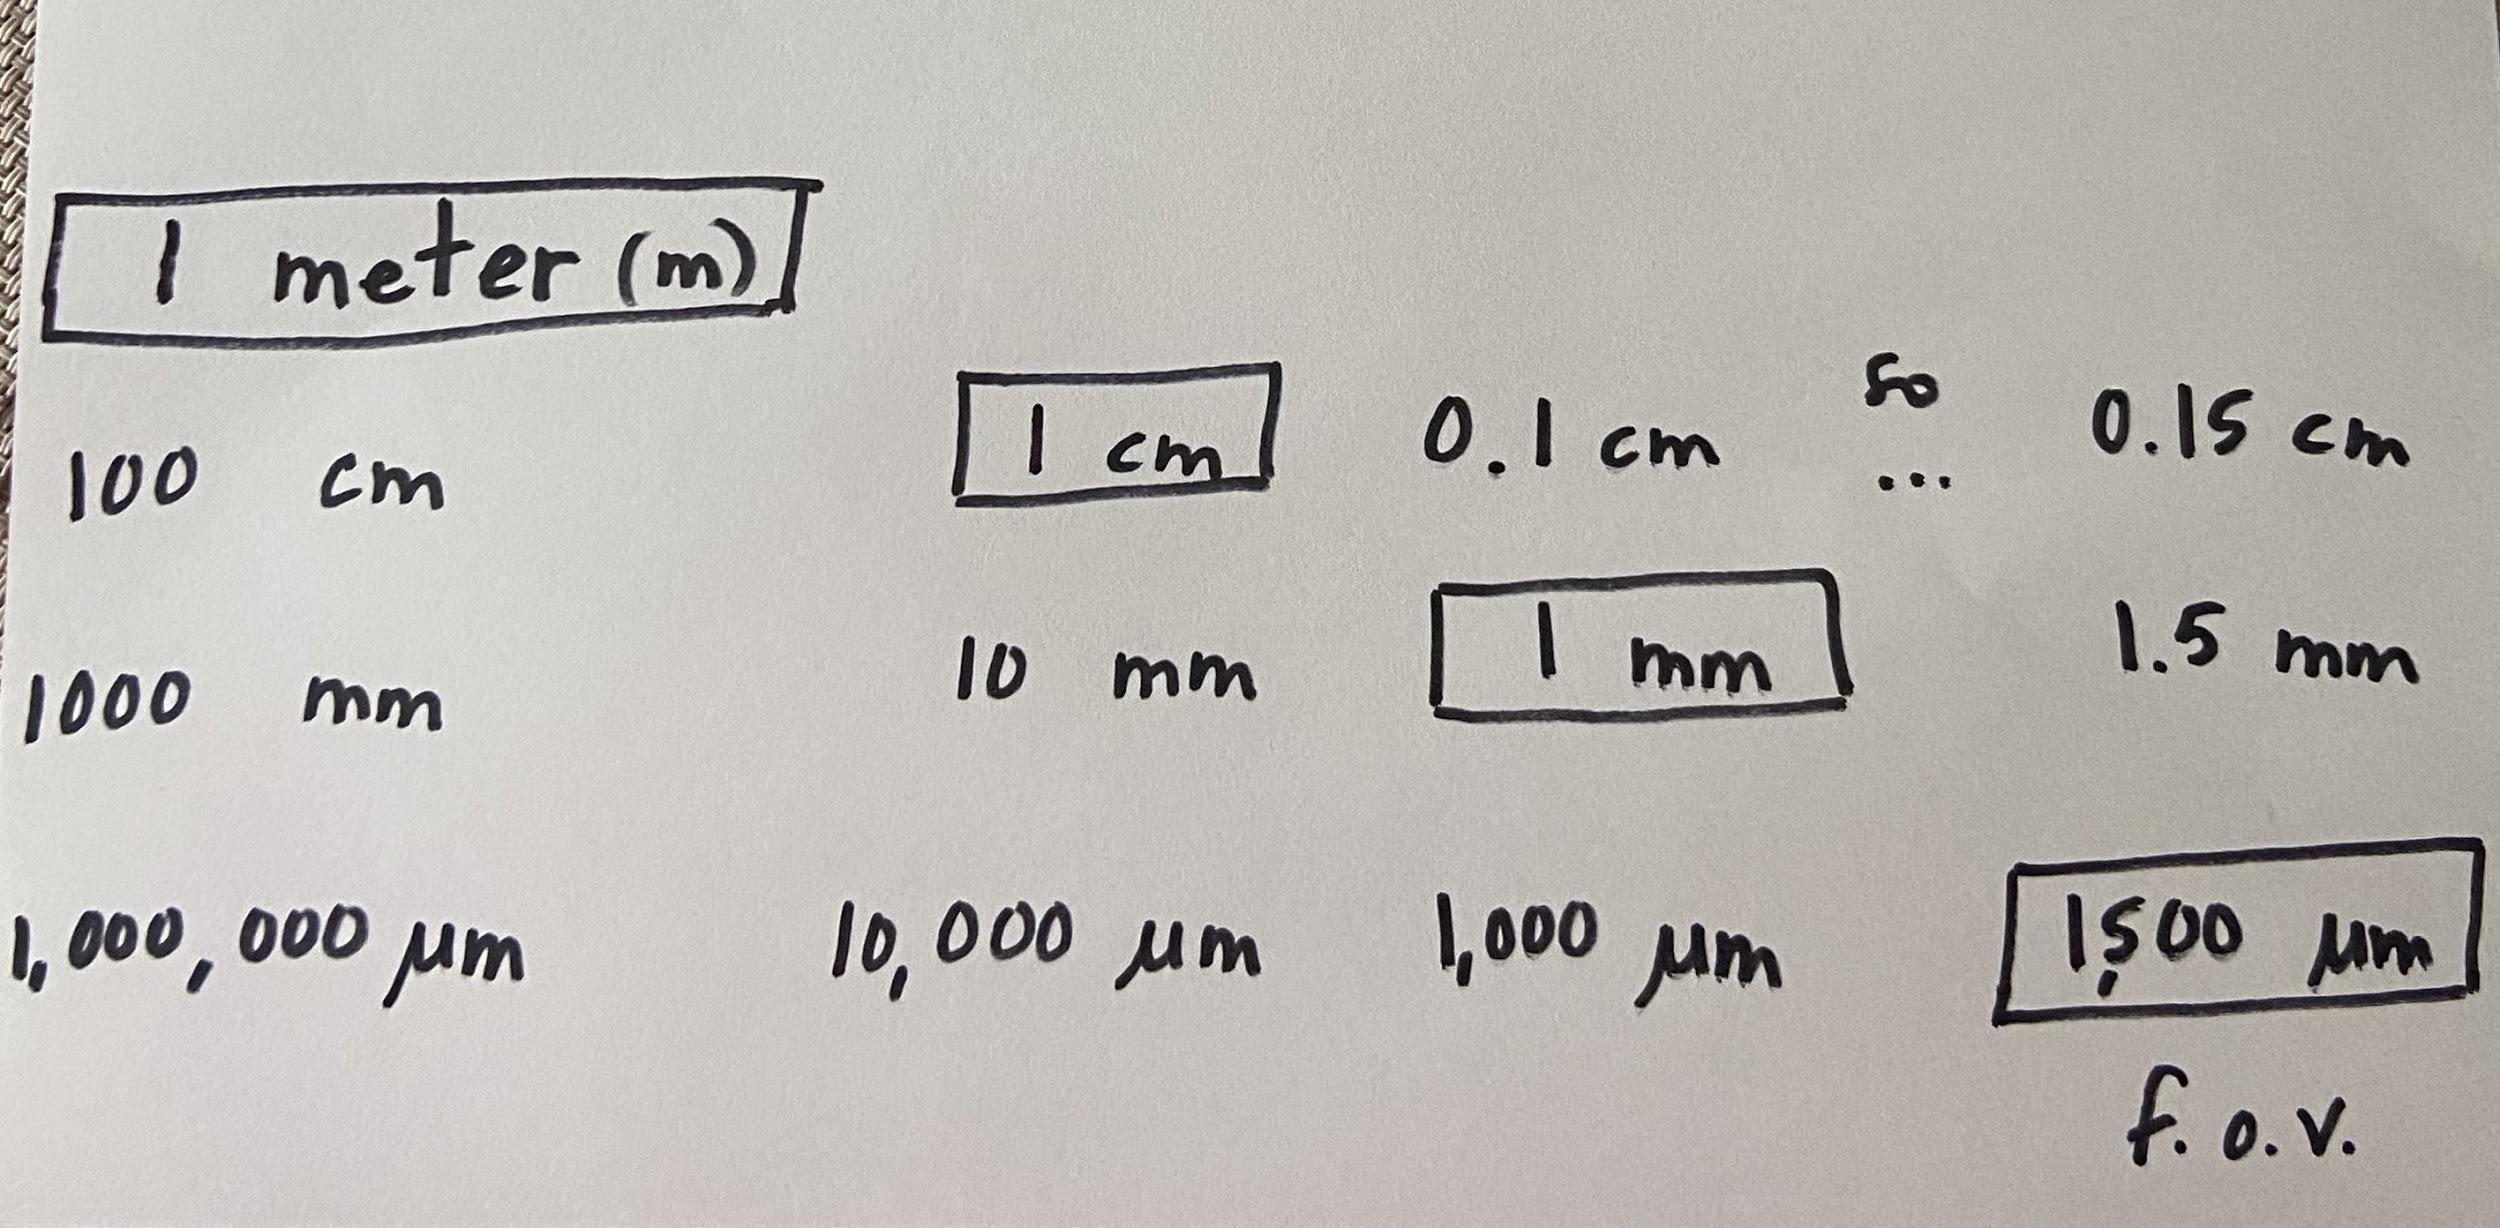 1 meter (m)
so
100 cm 1 cm 0.1 cm ... 0.15 cm
1000 mm 10 mm 1 mm 1.5 mm
1,000,000 µm 10,000 µm 1,000 µm 1,500 µm
f.o.v.